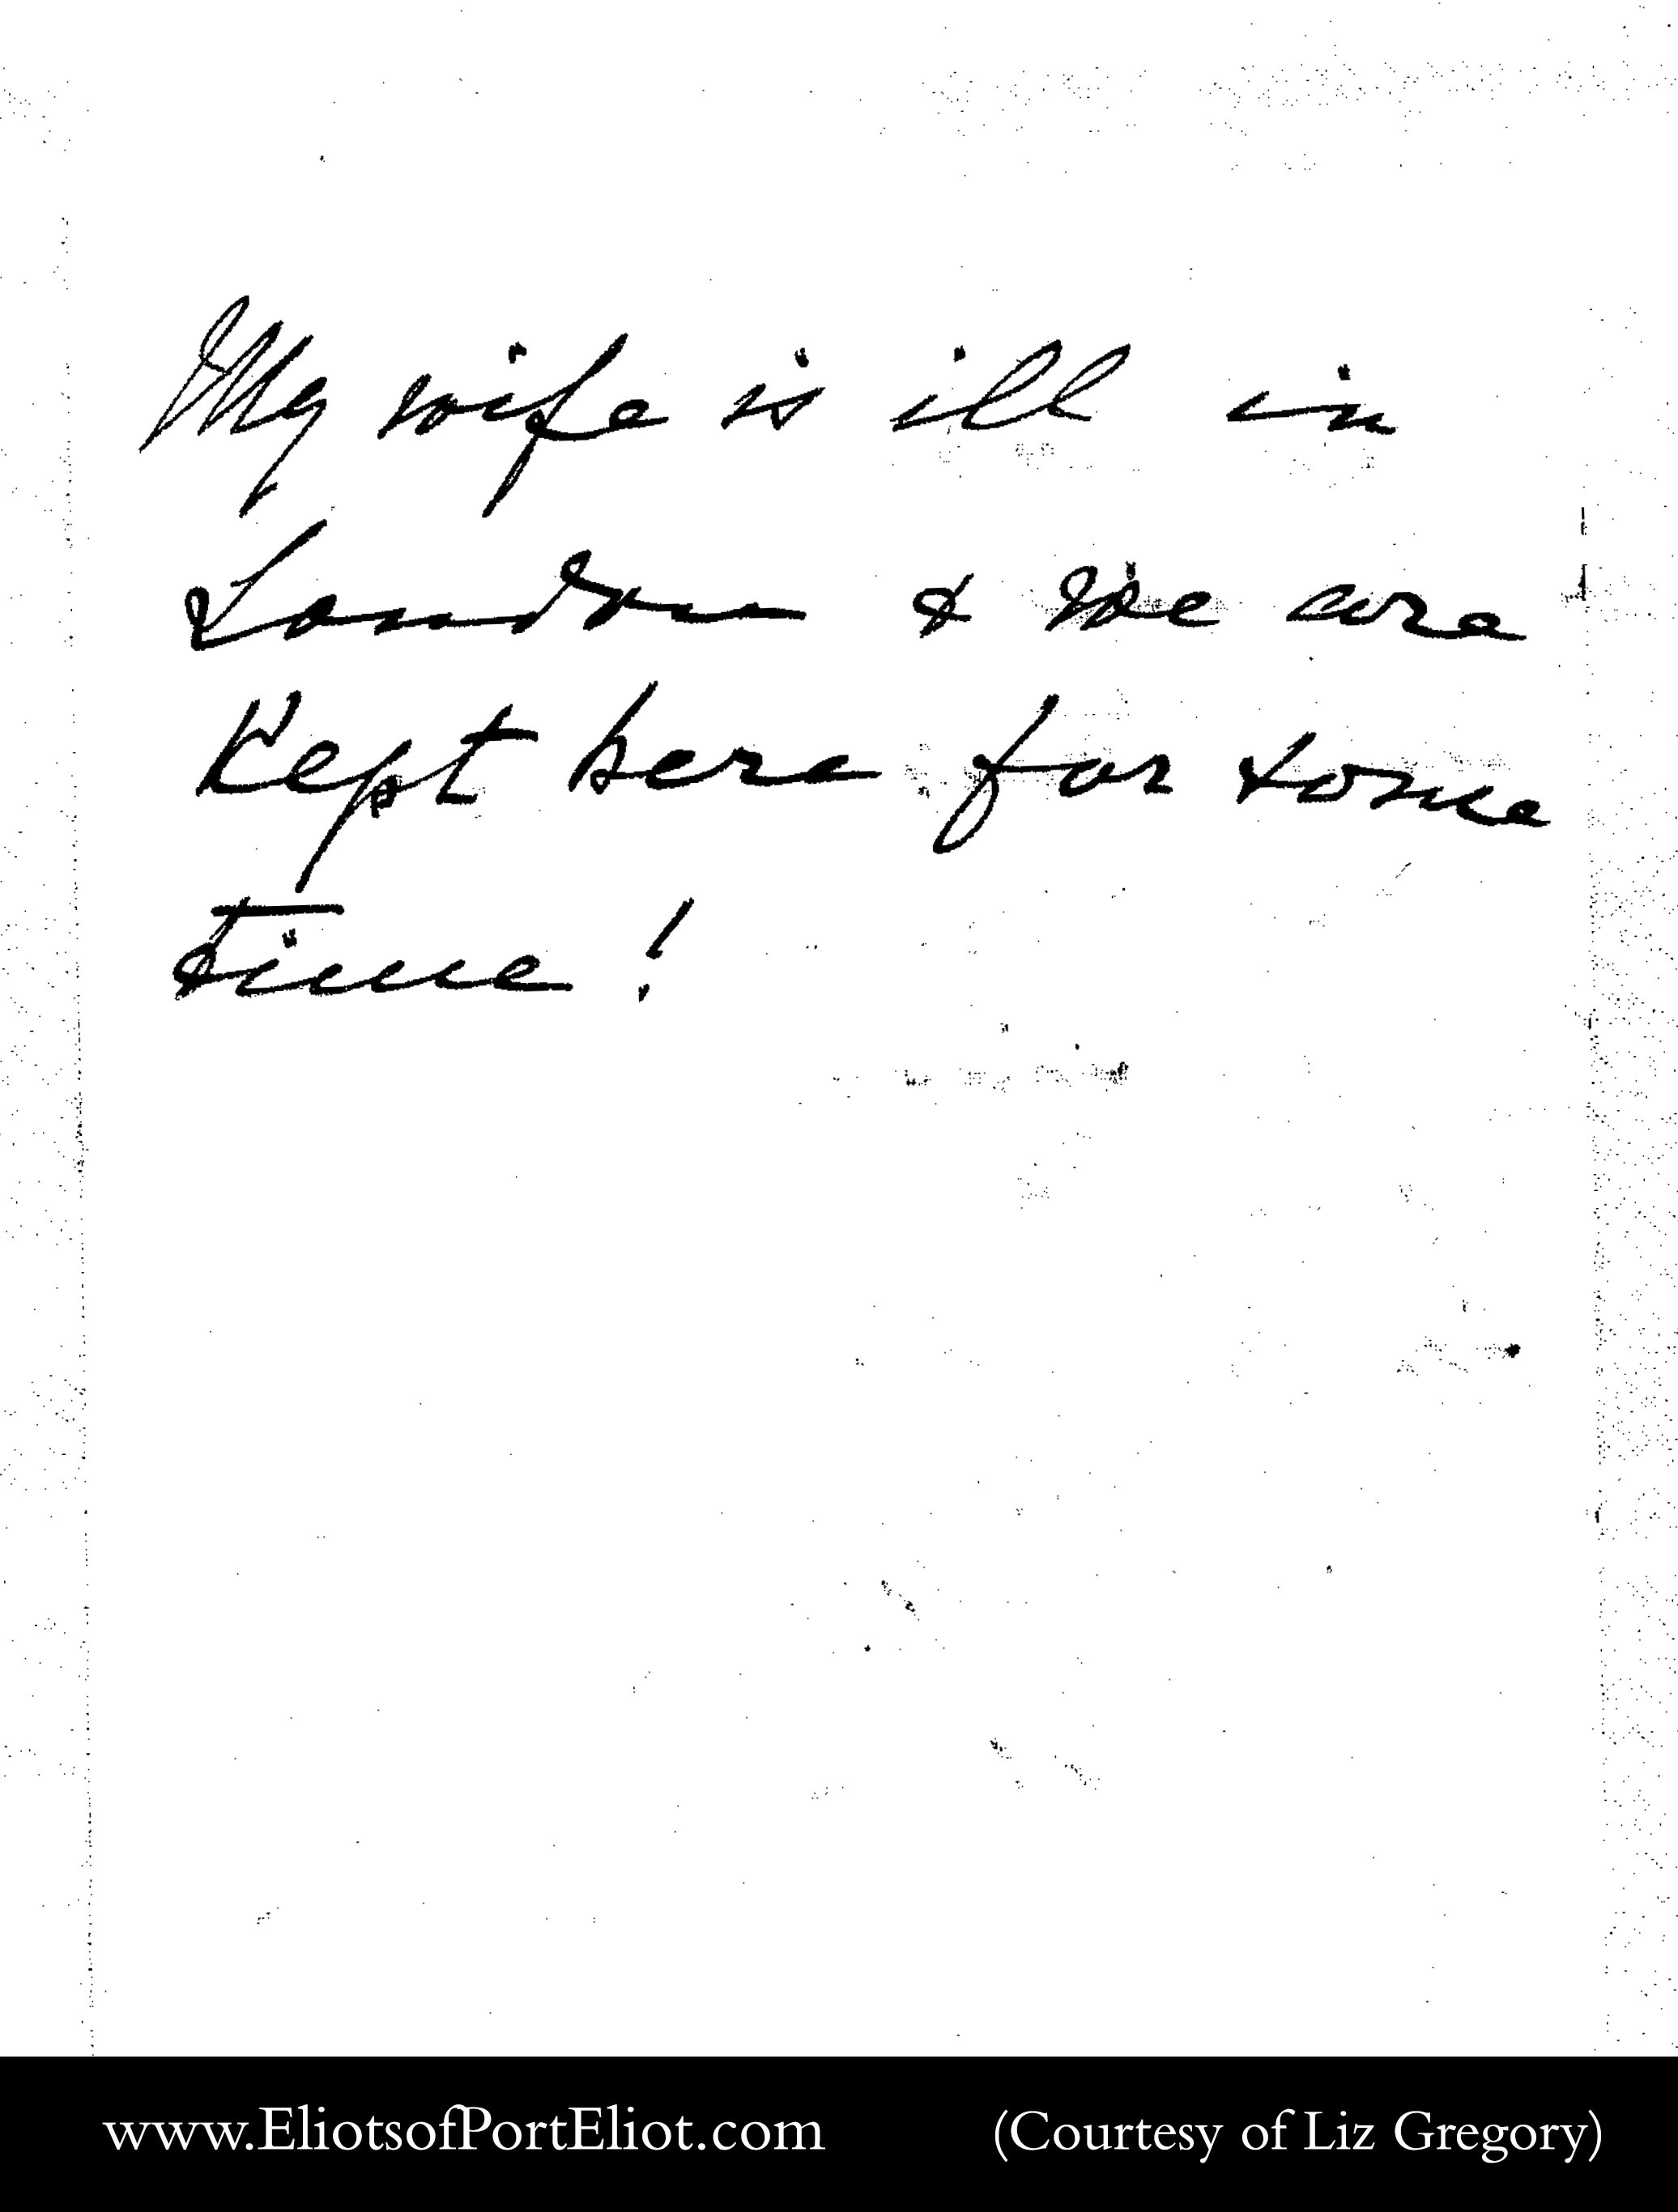 My wife is ill in
London & we are
kept here for some
time!
www.EliotsofPortEliot.com (Courtesy of Liz Gregory)